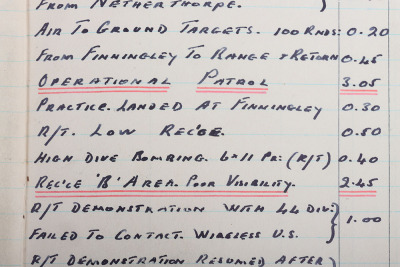 FROM NETHERTHORPE.
AIR TO GROUND TARGETS. 100 RNDS: 0.20
FROM FINNINGLEY TO RANGE & RETURN 0.45
OPERATIONAL PATROL 3.05
PRACTICE. LANDED AT FINNINGLEY 0.30
R/T. LOW REC'CE. 0.50
HIGH DIVE BOMBING. 6 × 11 PR: (R/T) 0.40
REC'CE 'B' AREA. POOR VISIBILITY. 2.45
R/T DEMONSTRATION WITH 44 DIV: 1.00
FAILED TO CONTACT. WIRELESS U.S.
R/T DEMONSTRATION RESUMED AFTER